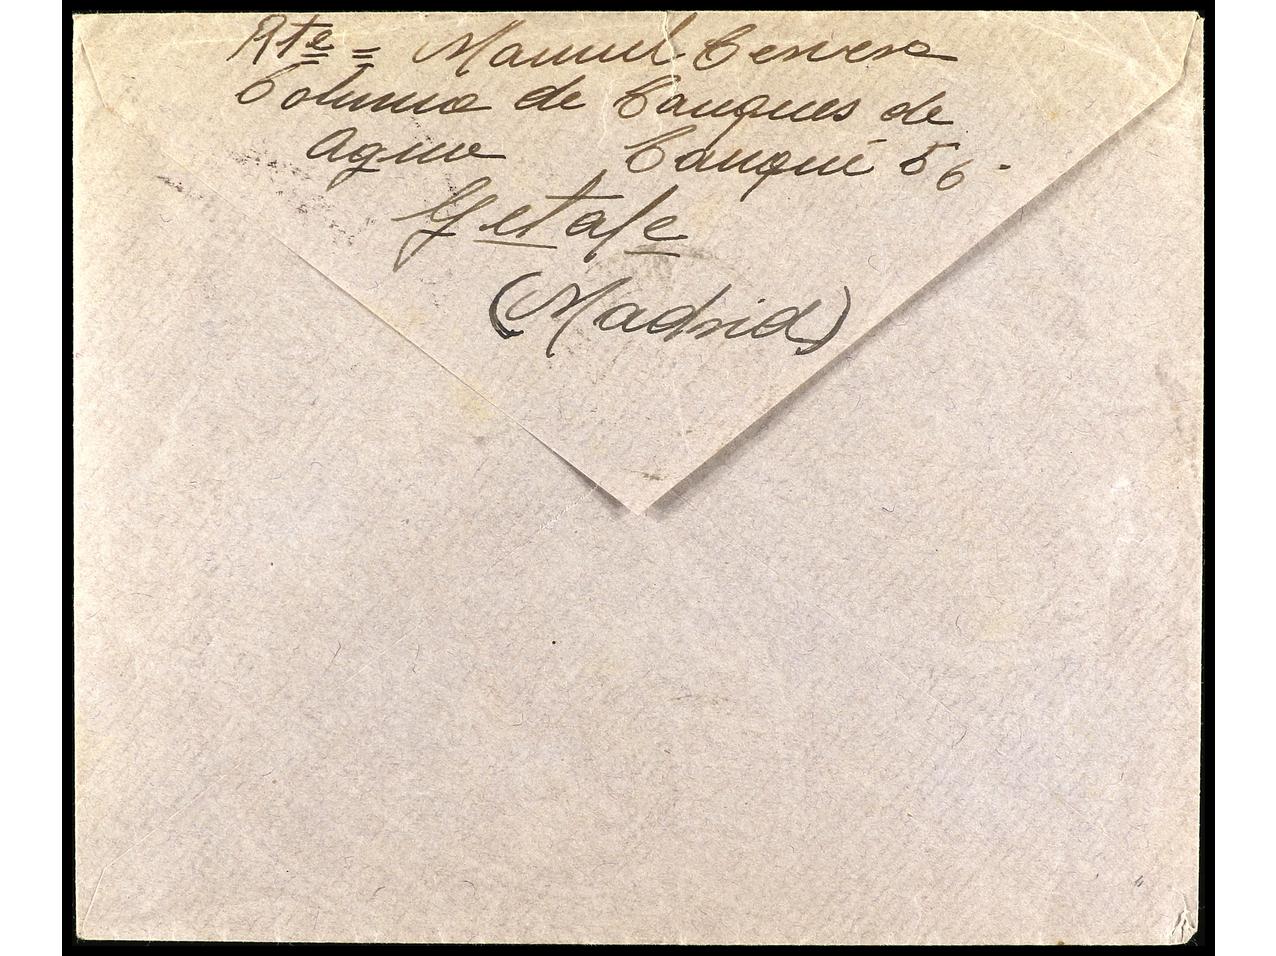 Rte = Manuel Cervera
Columna de Tanques de
Agua Tanque 56.
Getafe
(Madrid)